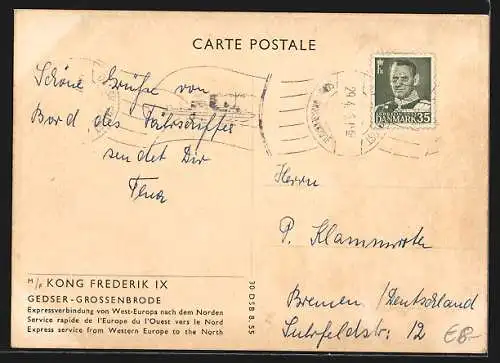 CARTE POSTALE
Schöne Grüße von
Bord des Fährschiffes
sendet Dir
DANMARK 35
29.4.
Herrn
P.
Bremen / Deutschland
12
€8-
M/F KONG FREDERIK IX
GEDSER-GROSSENBRODE
Expressverbindung von West-Europa nach dem Norden
Service rapide de l'Europe du l'Ouest vers le Nord
Express service from Western Europe to the North
30 DSB 8. 55